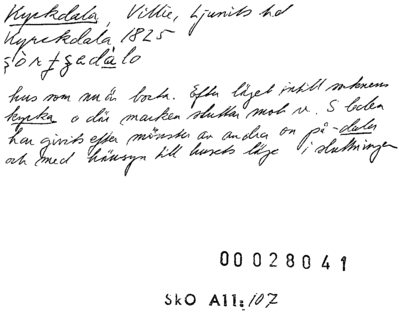 Kyrkdala, Villie, Ljunits hd
Kyrckdala 1825
hus som nu är borta. Efter läget intill sockens
kyrka o där marken sluttar mot v. S leden
har givits efter mönster av andra on på -dala
och med hänsyn till husets läge i sluttningen
00028041
SkO All: 107